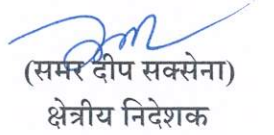 (समर दीप सक्सेना)
क्षेत्रीय निदेशक